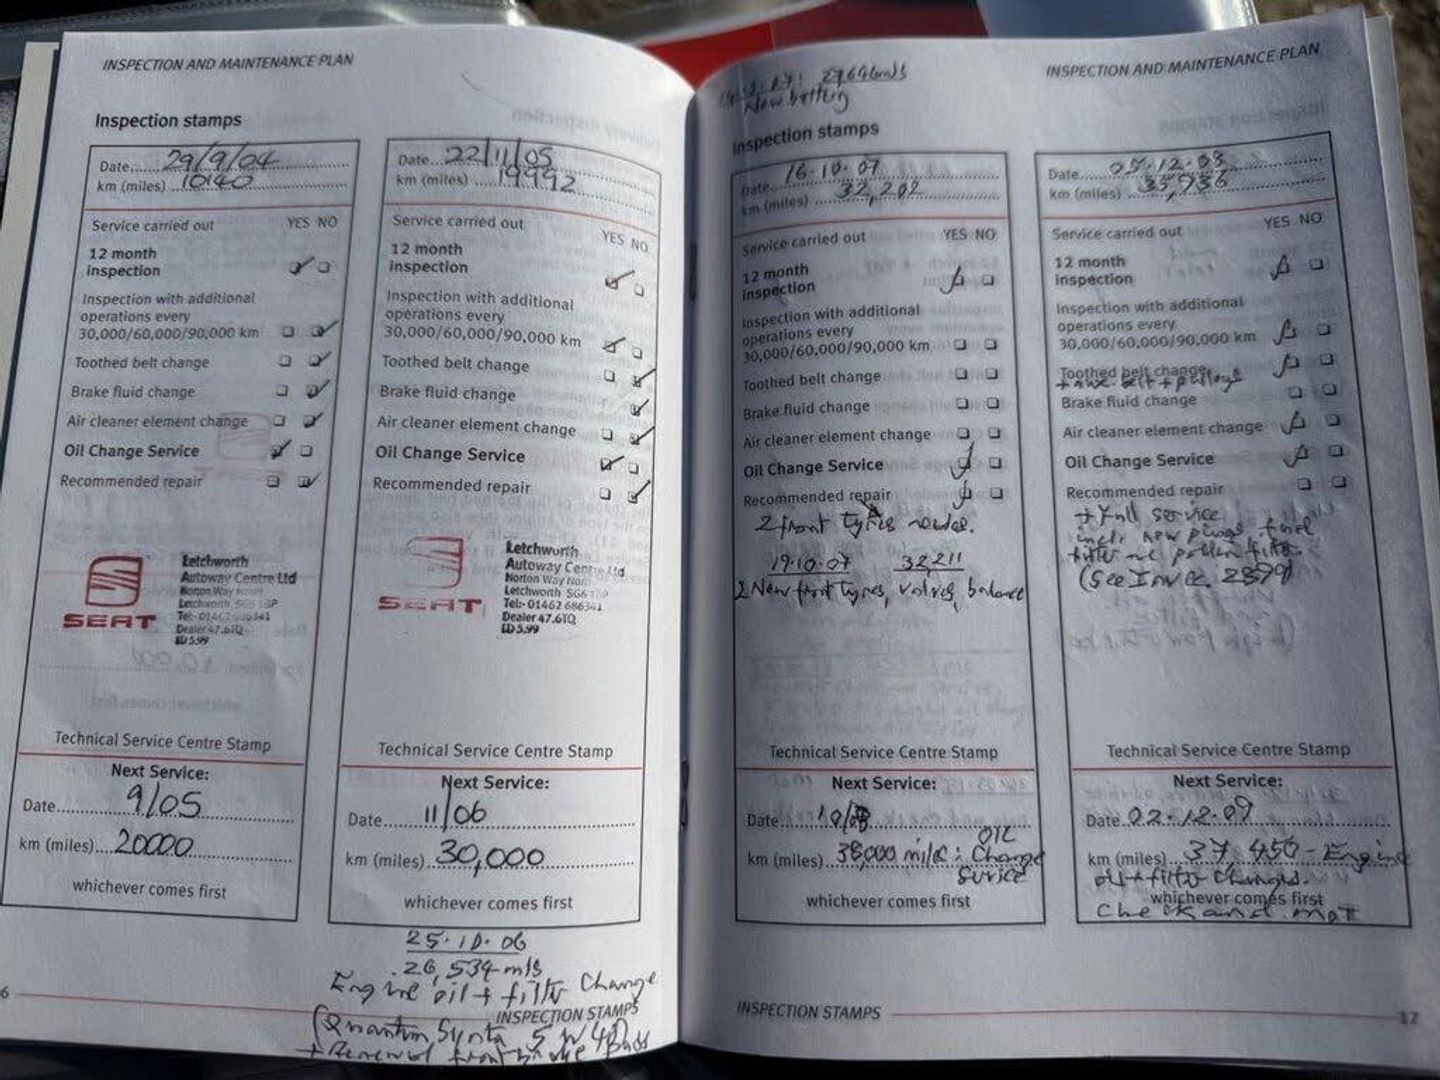 INSPECTION AND MAINTENANCE PLAN
Inspection stamps
Date 29/9/04
km (miles) 10140
Service carried out YES NO
12 month
inspection
Inspection with additional
operations every
30,000/60,000/90,000 km
Toothed belt change
Brake fluid change
Air cleaner element change
Oil Change Service
Recommended repair
SEAT
Letchworth
Autoway Centre Ltd
Norton Way North
Letchworth SG6 1BP
Tel:- 01462 686341
Dealer 47.61Q
LD 5.99
Technical Service Centre Stamp
Next Service:
Date 9/05
km (miles) 20000
whichever comes first
6
Date 22/11/05
km (miles) 19992
Service carried out YES NO
12 month
inspection
Inspection with additional
operations every
30,000/60,000/90,000 km
Toothed belt change
Brake fluid change
Air cleaner element change
Oil Change Service
Recommended repair
SEAT
Letchworth
Autoway Centre Ltd
Norton Way North
Letchworth SG6 1BP
Tel:- 01462 686341
Dealer 47.61Q
LD 5.99
Technical Service Centre Stamp
Next Service:
Date 11/06
km (miles) 30,000
whichever comes first
25.10.06
26,534 mls
Engine oil + filter Change
INSPECTION STAMPS
(Quantum Synta 5W40
+ Renewal front brake Pads
INSPECTION AND MAINTENANCE PLAN
07: 27646 mls
New battery
Inspection stamps
Date 16.10.07
km (miles) 32,202
Service carried out YES NO
12 month
inspection
Inspection with additional
operations every
30,000/60,000/90,000 km
Toothed belt change
Brake fluid change
Air cleaner element change
Oil Change Service
Recommended repair
2 front tyres needed.
19.10.07 32,211
2 New front tyres, valves, balance
Technical Service Centre Stamp
Next Service:
Date 10/08
OIL
km (miles) 38,000 miles: Change
Service
whichever comes first
Date 05.12.08
km (miles) 35,936
Service carried out YES NO
12 month
inspection
Inspection with additional
operations every
30,000/60,000/90,000 km
Toothed belt change
+ aux. belt + pulleys
Brake fluid change
Air cleaner element change
Oil Change Service
Recommended repair
+ Full service
incl: new plugs, fuel
filter and pollen filter
(See Invce. 2899)
Technical Service Centre Stamp
Next Service:
Date 02.12.09
km (miles) 37,450 - Engine
oil + filter changes.
whichever comes first
Check and MOT
INSPECTION STAMPS